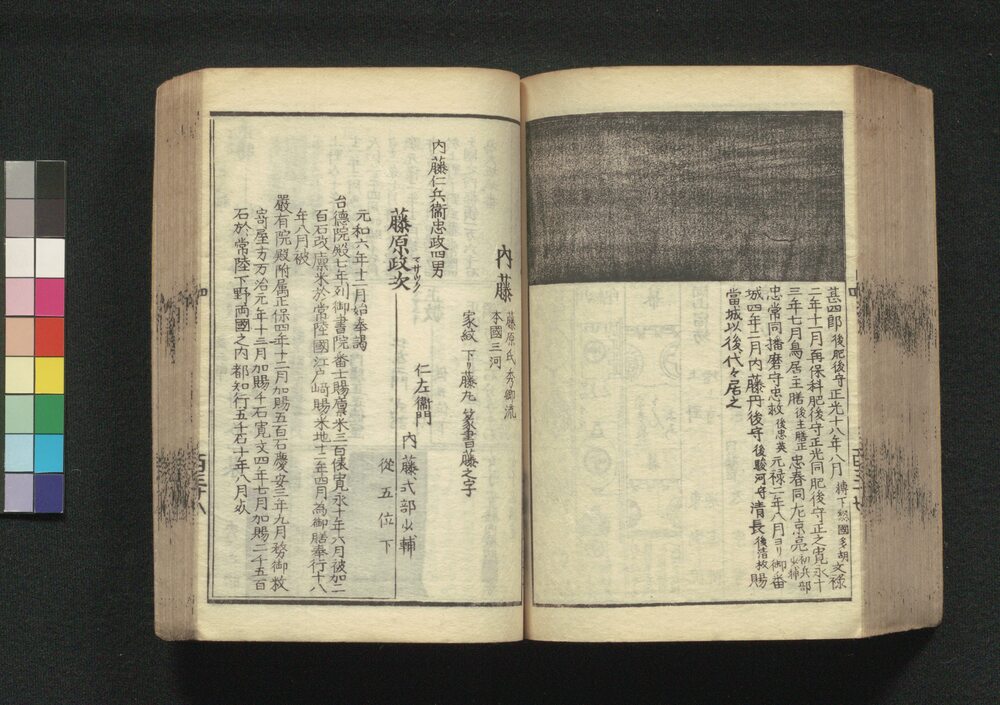 甚四郎 後肥後守正光十八年八月 轉下総國多胡文禄
二年十一月再保科肥後守正光同肥後守正之寛永十
三年七月鳥居主膳 後主膳正 忠春同左京亮 初兵部少輔
忠常同播磨守忠救 後忠英 元禄二年八月ヨリ御番
城四年二月内藤丹後守 後駿河守 清長 後清枚 賜
當城以後代々居之
内藤 藤原氏秀郷流
本國三河
家紋 下リ藤丸 篆書日藤之字
内藤仁兵衞忠政四男
藤原政次 マサツグ
仁左衞門
内藤式部少輔
從五位下
元和六年十二月始奉謁
台德院殿七年列御書院番士賜廩米三百俵寛永十年六月被加二
百石改廩米於常陸國江戸﨑賜采地十二年四月為御膳奉行十八
年八月被
嚴有院殿附属正保四年十二月加賜五百石慶安三年九月務御救
寄屋方万治元年十二月加賜千石寛文四年七月加賜二千五百
石於常陸下野両國之内都知行五千石十年八月
百三十八